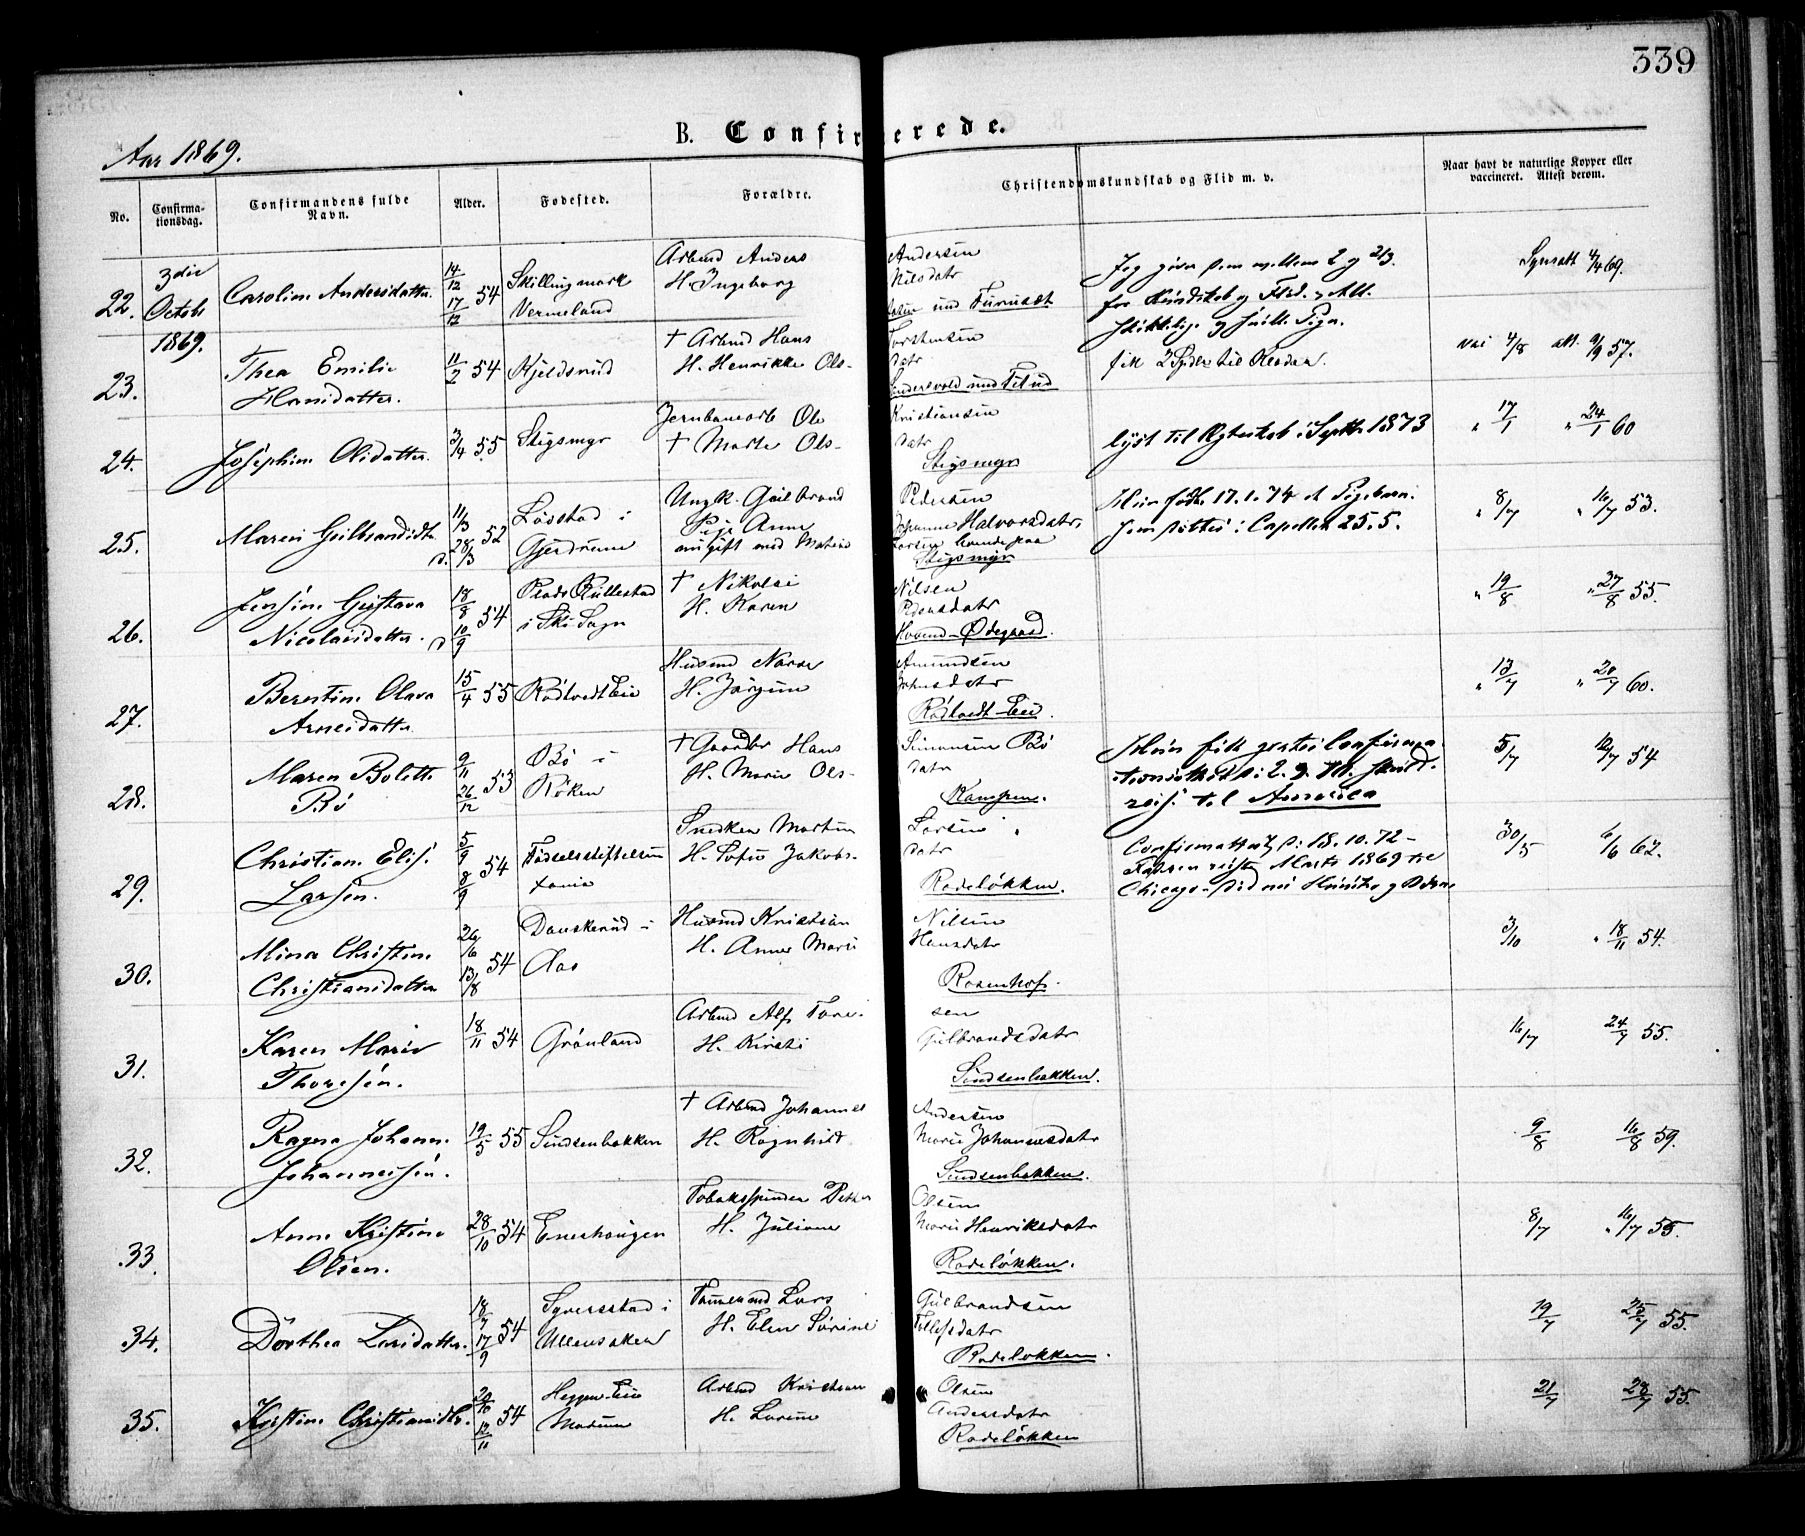 339
B. Confirmerede.
Aar 1869.
No.
Confirma-
tionsdag.
Confirmandens fulde
Navn.
Alder.
Fødested.
Forældre.
Christendomskundskab og Flid m. v.
Naar havt de naturlige Kopper eller
vaccineret. Attest derom.
22.
3die
Octobr
1869.
Caroline Andersdatter
14/12 17/12 54
Skillingmark
Vermeland
Arbmd Anders Andersen
H. Ingeborg Nilsdatr
Furuset
4/4 69.
23.
Thea Emilie
Hansdatter.
11/2 54
Kjeldsrud
† Arbmd Hans Torstensen
H. Henrikke Ols- datr
4/8 9/9 57.
24.
Josephine Olsdatter.
3/4 55
Stigsmyr
Jernbanearb Ole Kristiansen
† Marte Ols- datr
Stigsmyr
lyst til Ægteskab i Septbr 1873
" 17/1 " 24/1 60
25.
Maren Gulbrandsdtr
11/3 d. 28/3 52
Løsstad i
Gjerdrum
Ungk. Gulbrand Pedersen
Pige Anne Halvorsdatr,
nu gift med Mathias Larsen boende paa
Stigsmyr
Hun fødte 17.1.74 et Pigebarn.
i Capellet 25.5.
" 8/7 " 16/7 53.
26.
Jensine Gustava
Nicolaisdatter.
18/8 d 10/9 54
Plads Kullestad
i Ski Sogn
† Nikolai Nilsen
H. Karen Pedersdatr
Ødegaard.
" 19/8 " 27/8 55.
27.
Berentine Olava
Arnesdatter
15/4 55
Rødtvedt Eie
Husmd Narve Amundsen
H. Jørgine Johnsdatr
Rødtvedt-Eie.
" 13/7 " 20/7 60.
28.
Maren Bolette
Bö
9/11 26/12 53
Bö i
Röken
† Gaardbr Hans Simonsen Bö
H. Marie Ols- datr
Kampen.
Hun fik gratis Confirma-
tionsattest
reise til Amerika
5/7 12/7 54
29.
Christiane Elise
Larsen.
5/9 8/9 54
Fødselsstiftelsen
Snedker Martin Larsen
H. Sofie Jakobs- datr
Rodeløkken.
Confirmatt 18.10.72 –
Faderen reiste Marts 1869 til
Chicago
30/5 6/6 62.
30.
Mina Christine
Christiansdatter
26/6 13/8 54
Danskerud i
Aas
Husmd Kristian Nilsen
H. Anne Marie Hansdatr
Rosenhof.
3/10 " 18/11 54.
31.
Karen Marie
Thoresen.
18/11 54
Grønland
Arbmd Alf Tore- sen
H. Kirsti Gulbrandsdatr
Sindsenbakken.
16/7 24/7 55.
32.
Ragna Johanne
Johannessen.
19/5 55
Sindsenbakken
† Arbmd Johannes Andersen
H. Ragnhild Marie Johannesdatr
Sindsenbakken.
9/8 16/8 59.
33.
Anne Kristine
Olsen.
28/10 54
Enerhougen
Tobaksspinder Petter Olsen
H. Juliane Marie Henriksdatr
Rodeløkken.
8/7 " 16/7 55.
34.
Dorthea Larsdatter.
18/7 17/9 54
Syversstad i
Ullensaker
Tømmermd Lars Gulbrandsen
H. Elen Sørine Tollefsdatr
Rodeløkken.
19/7 25/7 55.
35.
Kristine Christiansdtr.
20/10 12/11 54
Heggen-Eie
Modum
Arbmd Kristian Olsen
H. Lorine Andersdatr
Rodeløkken
21/7 28/7 55.